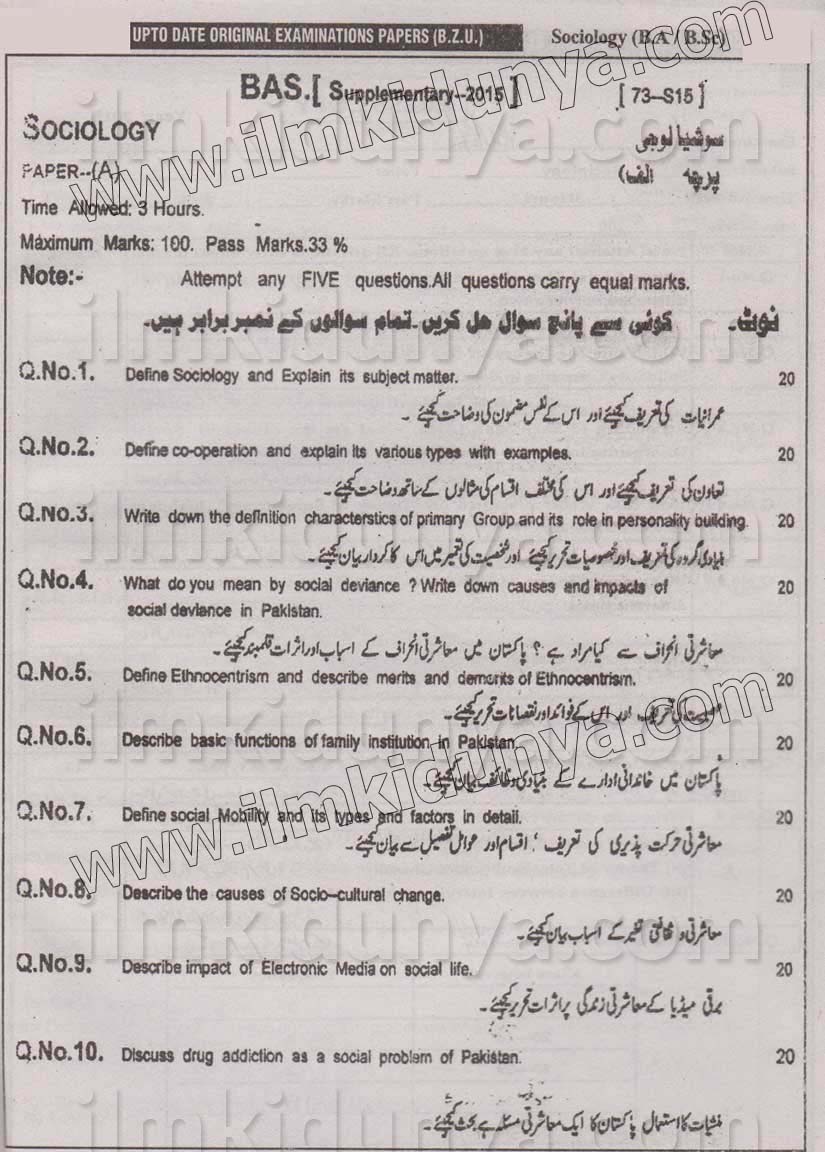 UPTO DATE ORIGINAL EXAMINATIONS PAPERS (B.Z.U.) Sociology (B.A / B.Sc)
BAS.[ Supplementary--2015 ] [ 73--S15 ]
SOCIOLOGY سوشیالوجی
PAPER--(A) پرچہ (الف)
Time Allowed: 3 Hours.
Maximum Marks: 100. Pass Marks.33 %
Note:- Attempt any FIVE questions.All questions carry equal marks.
نوٹ۔ کوئی سے پانچ سوال حل کریں۔تمام سوالوں کے نمبر برابر ہیں۔
Q.No.1. Define Sociology and Explain its subject matter. 20
عمرانیات کی تعریف کیجئے اور اس کے نفس مضمون کی وضاحت کیجئے ۔
Q.No.2. Define co-operation and explain its various types with examples. 20
تعاون کی تعریف کیجئے اور اس کی مختلف اقسام کی مثالوں کے ساتھ وضاحت کیجئے۔
Q.No.3. Write down the definition characterstics of primary Group and its role in personality building. 20
بنیادی گروہ کی تعریف اور خصوصیات تحریر کیجئے اور شخصیت کی تعمیر میں اس کا کردار بیان کیجئے۔
Q.No.4. What do you mean by social deviance ? Write down causes and impacts of 20
social deviance in Pakistan.
معاشرتی انحراف سے کیا مراد ہے ؟ پاکستان میں معاشرتی انحراف کے اسباب اور اثرات قلمبند کیجئے۔
Q.No.5. Define Ethnocentrism and describe merits and demerits of Ethnocentrism. 20
کی تعریف اور اس کے فوائد اور نقصانات تحریر کیجئے۔
Q.No.6. Describe basic functions of family institution in Pakistan. 20
پاکستان میں خاندانی ادارے کے بنیادی وظائف بیان کیجئے۔
Q.No.7. Define social Mobility and its types and factors in detail. 20
معاشرتی حرکت پذیری کی تعریف ' اقسام اور عوامل تفصیل سے بیان کیجئے۔
Q.No.8. Describe the causes of Socio--cultural change. 20
معاشرتی و ثقافتی تغیر کے اسباب بیان کیجئے۔
Q.No.9. Describe impact of Electronic Media on social life. 20
برقی میڈیا کے معاشرتی زندگی پر اثرات تحریر کیجئے۔
Q.No.10. Discuss drug addiction as a social problem of Pakistan. 20
منشیات کا استعمال پاکستان کا ایک معاشرتی مسئلہ ہے بحث کیجئے۔
www.ilmkidunya.com
www.ilmkidunya.com
ilmkidunya.com
ilmkidunya.com
ilmkidunya.com
ilmkidunya.com
ilmkidunya.com
ilmkidunya.com